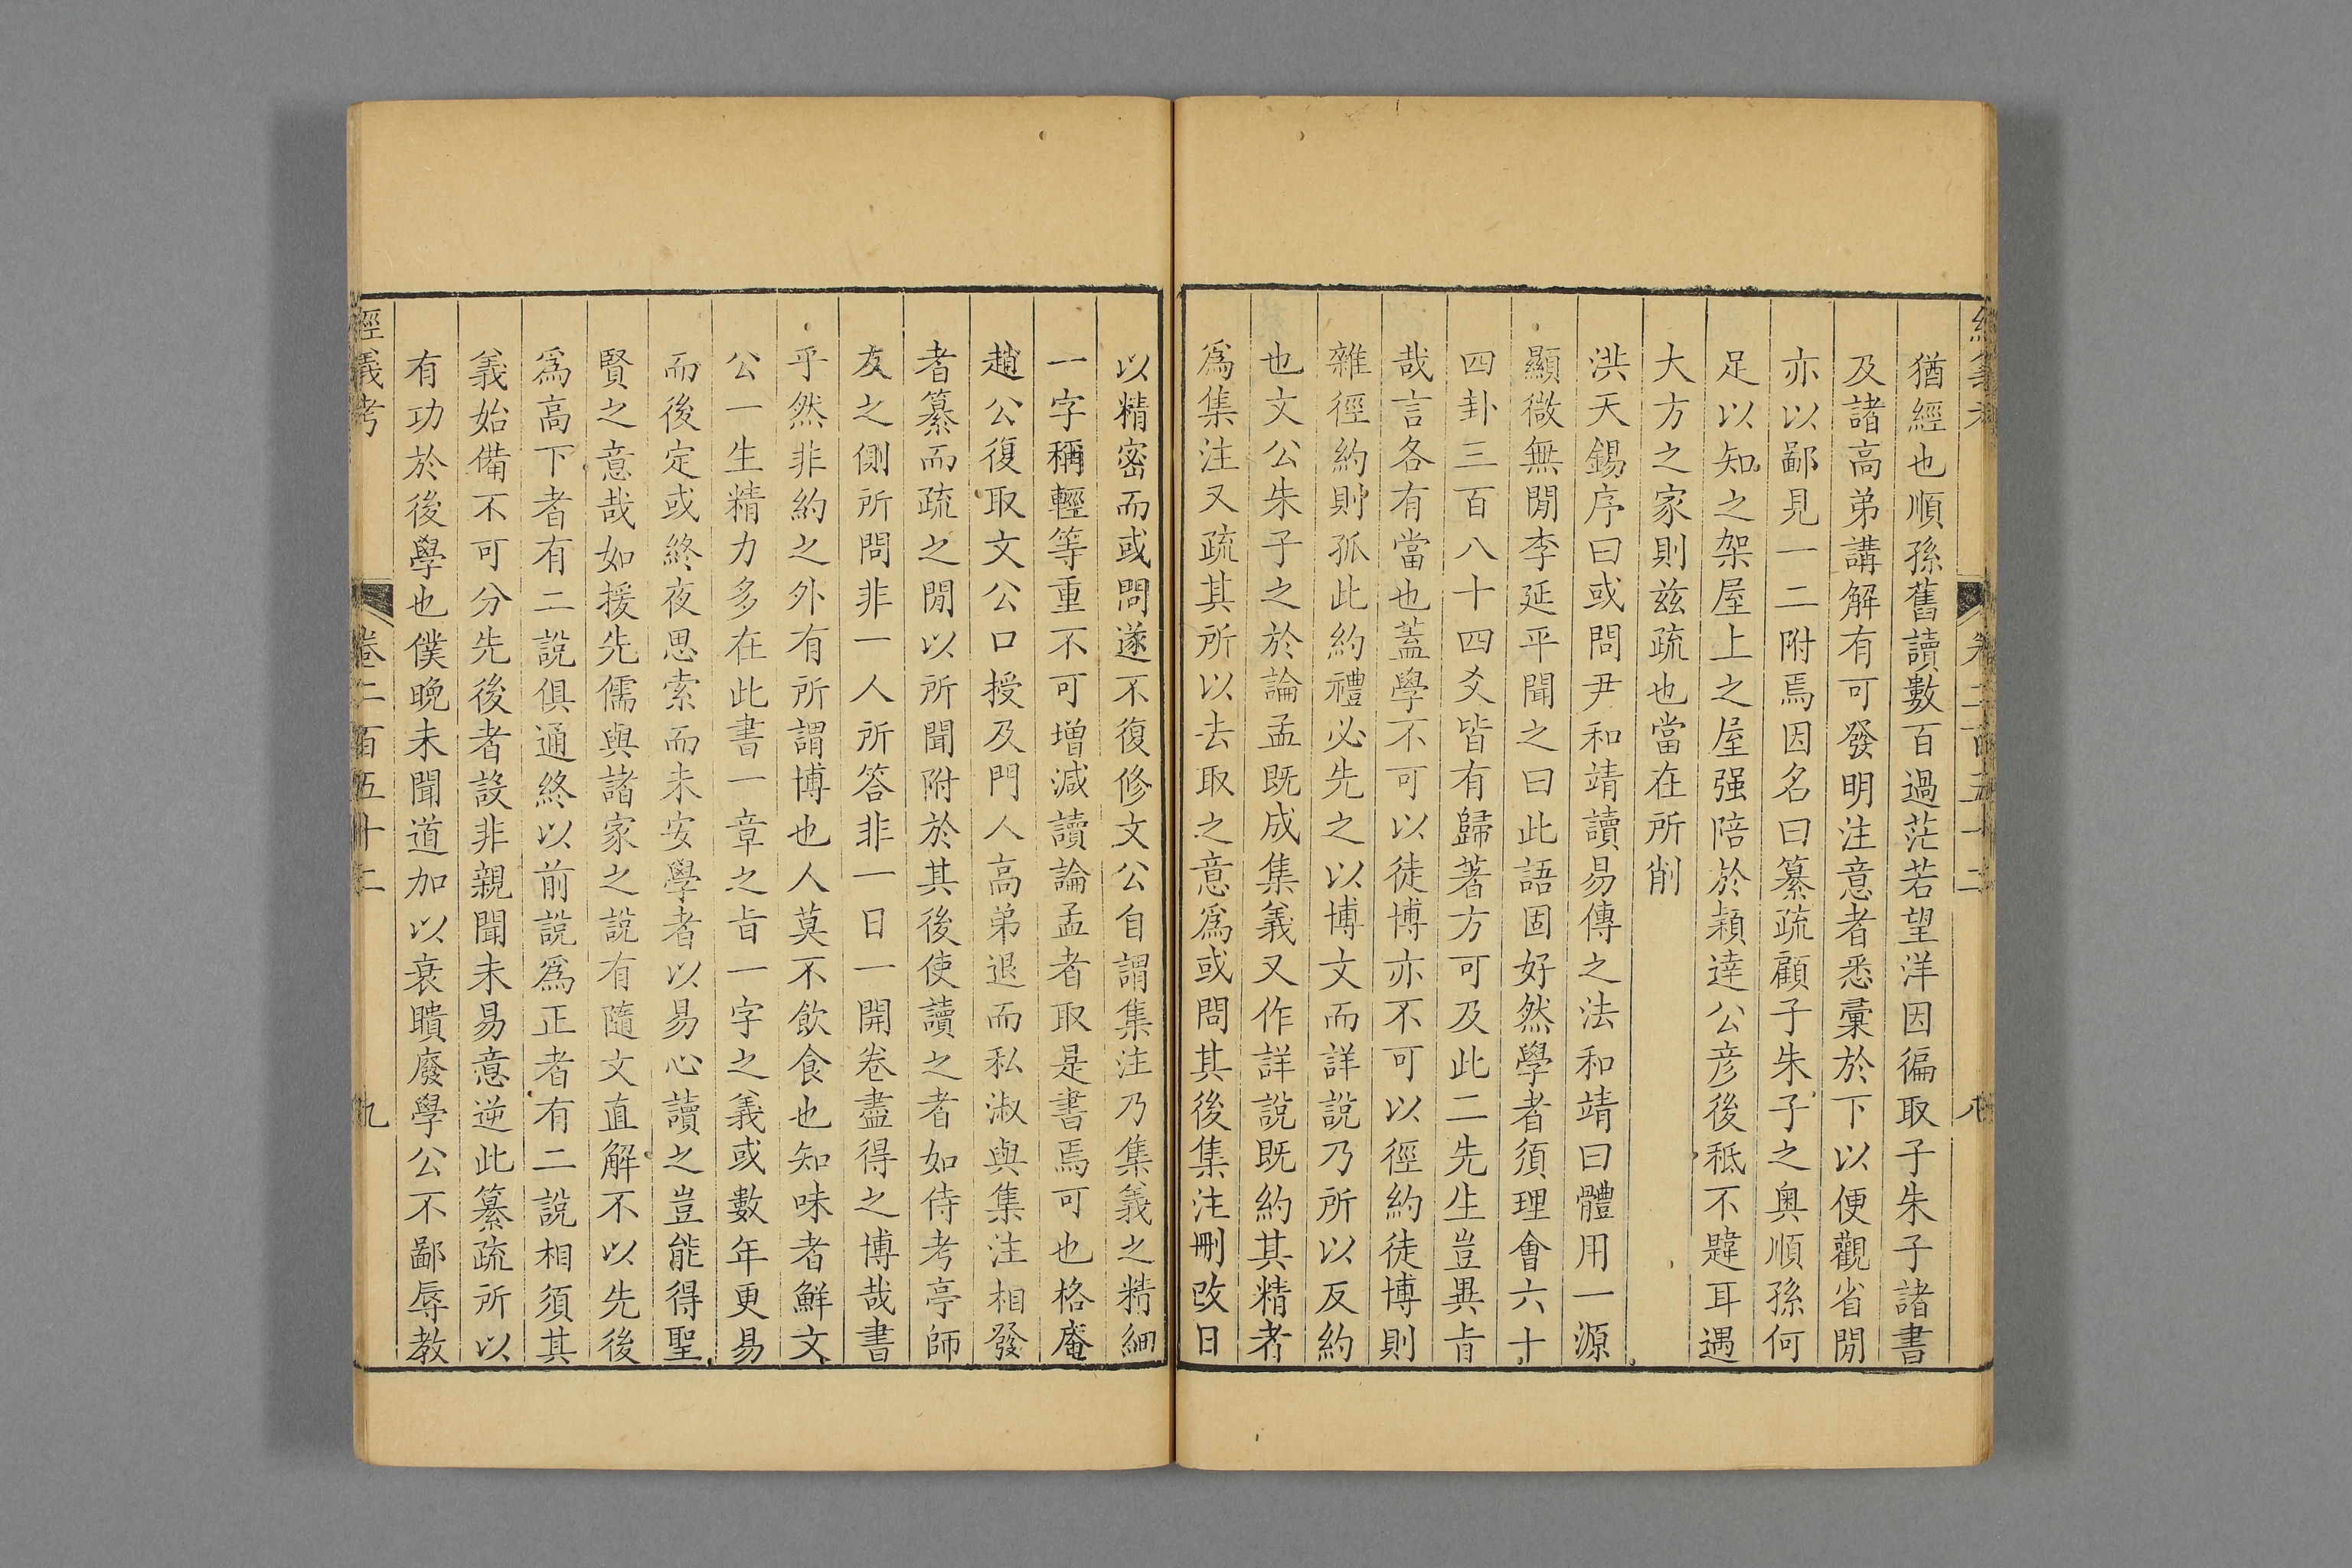 經義考
卷二百五十二
八
猶經也順孫舊讀數百過茫若望洋因徧取子朱子諸書
及諸高弟講解有可發明注意者悉彚於下以便觀省閒
亦以鄙見一二附焉因名曰纂疏顧子朱子之奧順孫何
足以知之架屋上之屋强陪於穎達公彦後秪不韙耳遇
大方之家則兹疏也當在所削
洪天錫序曰或問尹和靖讀易傳之法和靖曰體用一源
顯微無閒李延平聞之曰此語固好然學者須理會六十
四卦三百八十四爻皆有歸著方可及此二先生豈異㫖
哉言各有當也蓋學不可以徒博亦不可以徑約徒博則
雜徑約則孤此約禮必先之以博文而詳説乃所以反約
也文公朱子之於論孟既成集義又作詳説既約其精者
爲集注又疏其所以去取之意爲或問其後集注刪改日
以精密而或問遂不復修文公自謂集注乃集義之精細
一字稱輕等重不可增減讀論孟者取是書焉可也格菴
趙公復取文公口授及門人高弟退而私淑與集注相發
者纂而疏之閒以所聞附於其後使讀之者如侍考亭師
友之側所問非一人所答非一日一開卷盡得之博哉書
乎然非約之外有所謂博也人莫不飲食也知味者鮮文
公一生精力多在此書一章之㫖一字之義或數年更易
而後定或終夜思索而未安學者以易心讀之豈能得聖
賢之意哉如援先儒與諸家之説有隨文直解不以先後
爲高下者有二説俱通終以前説爲正者有二説相須其
義始備不可分先後者設非親聞未易意逆此纂疏所以
有功於後學也僕晚未聞道加以衰聵廢學公不鄙辱教
經義考
卷二百五十二
九